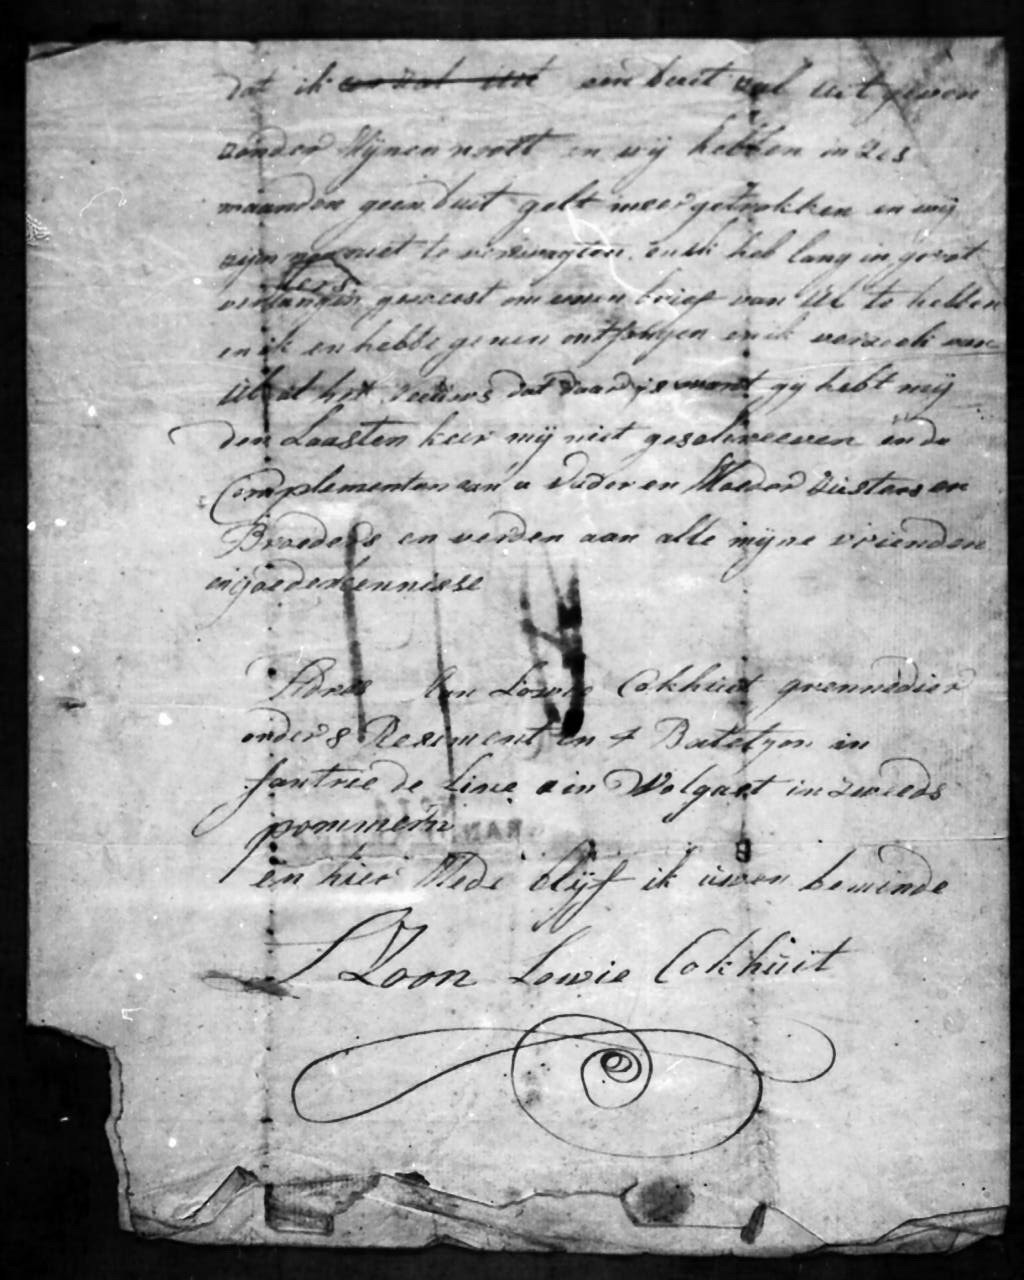 dat ik een duit zal uit geven
zonder Mijnen noott en wij hebben in zes
maanden geen duit gelt meer getrokken en wij
zijn nog niet te verwagten en ik heb lang in groot
verlangen geweest om eenen brief van Ul te hebben
en ik en hebbe geenen ontfangen en ik verzoek van
Ul al het nieuws dat daar is want gij hebt mij
den Laasten keer mij niet geschreeven en de
Complementen aan u Vader en Moeder zusters en
Broeders en verden aan alle mijne vrienden
en goede kennisse
Adres Van Lowie Cokhuit grennedier
onder 8 Resement en 4 Batetyon in
fantrie de Line in Wolgast in zweeds
pommern
en hier Mede blijf ik uwen beminde
Zoon Lowie Cokhuit